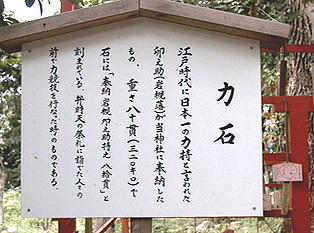 力石
江戸時代に日本一の力持と言われた
卯之助(岩槻藩)が当神社に奉納した
もの。重さ八十貫(三二〇キロ)で
石には「奉納岩槻卯之助持之八拾貫」と
刻まれている。弁財天の祭礼に詣でた人々の
前で力競技を行なった時のものである。